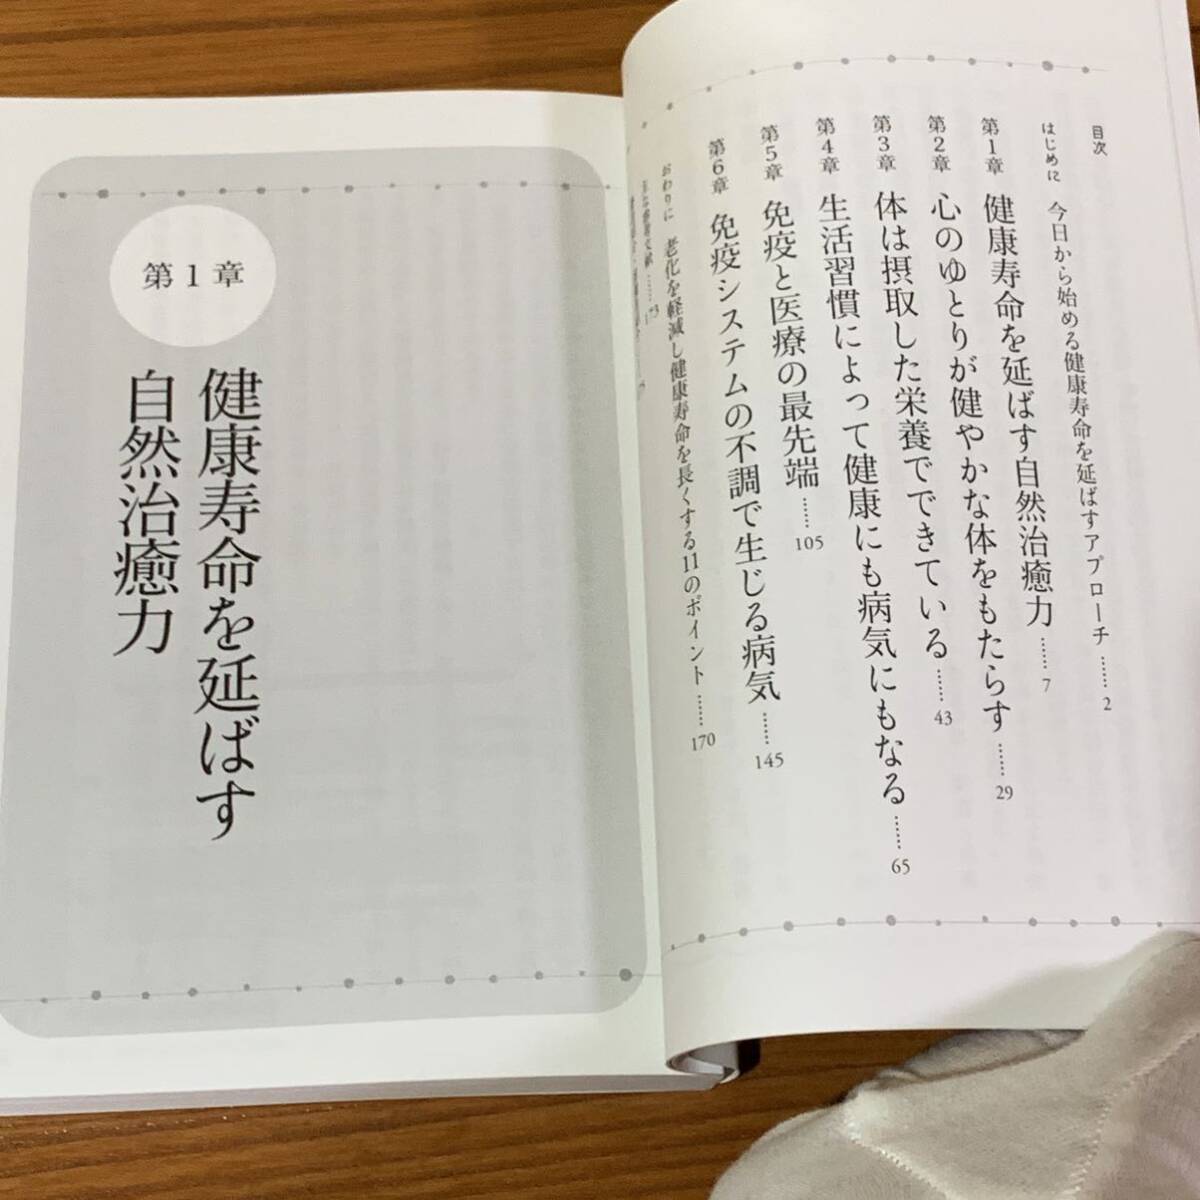 目次
はじめに 今日から始める健康寿命を延ばすアプローチ……2
第1章 健康寿命を延ばす自然治癒力……7
第2章 心のゆとりが健やかな体をもたらす……29
第3章 体は摂取した栄養でできている……43
第4章 生活習慣によって健康にも病気にもなる……65
第5章 免疫と医療の最先端……105
第6章 免疫システムの不調で生じる病気……145
おわりに 老化を軽減し健康寿命を長くする11のポイント……170
第1章
健康寿命を延ばす
自然治癒力